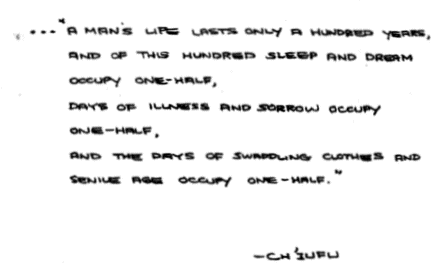 ..."A MAN'S LIFE LASTS ONLY A HUNDRED YEARS,
AND OF THIS HUNDRED SLEEP AND DREAM
OCCUPY ONE-HALF,
DAYS OF ILLNESS AND SORROW OCCUPY
ONE-HALF,
AND THE DAYS OF SWADDLING CLOTHES AND
SENILE AGE OCCUPY ONE-HALF."
-CH'IUFU